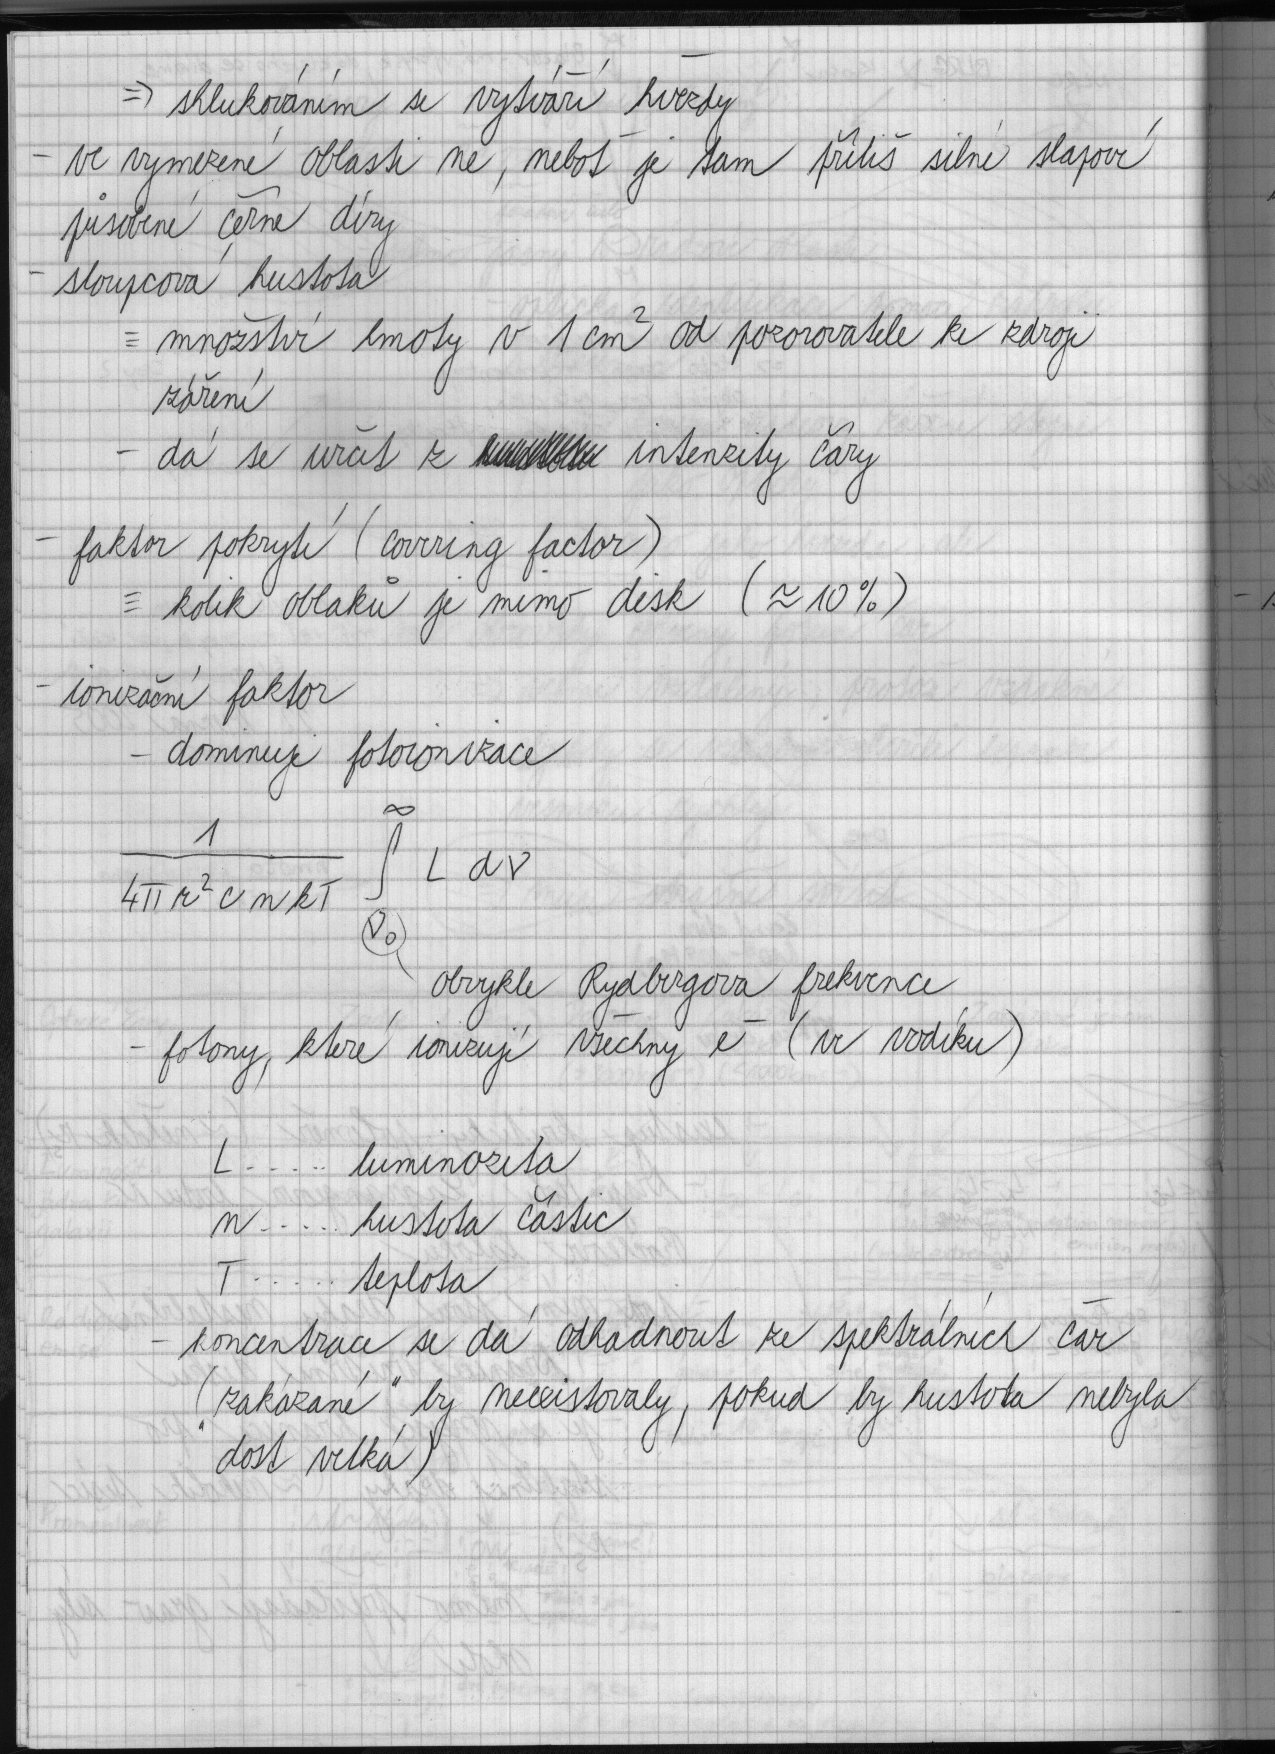 ⇒ shlukováním se vytváří hvězdy
- ve vymezené oblasti ne, neboť je tam příliš silné slapové
působené černé díry
- sloupcová hustota
≡ množství hmoty v 1 cm² od pozorovatele ke zdroji
záření
- dá se určit z intenzity čáry
- faktor pokrytí (covering factor)
≡ kolik oblaků je mimo disk (≈ 10%)
- ionizační faktor
- dominuje fotoionizace
1/(4πr²cnkT) ∫_{ν₀}^{∞} L dν
obvykle Rydbergova frekvence
- fotony, které ionizují všechny e⁻ (ve vodíku)
L ..... luminozita
n ..... hustota částic
T ..... teplota
- koncentrace se dá odhadnout ze spektrálních čar
(„zakázané“ by neexistovaly, pokud by hustota nebyla
dost velká)